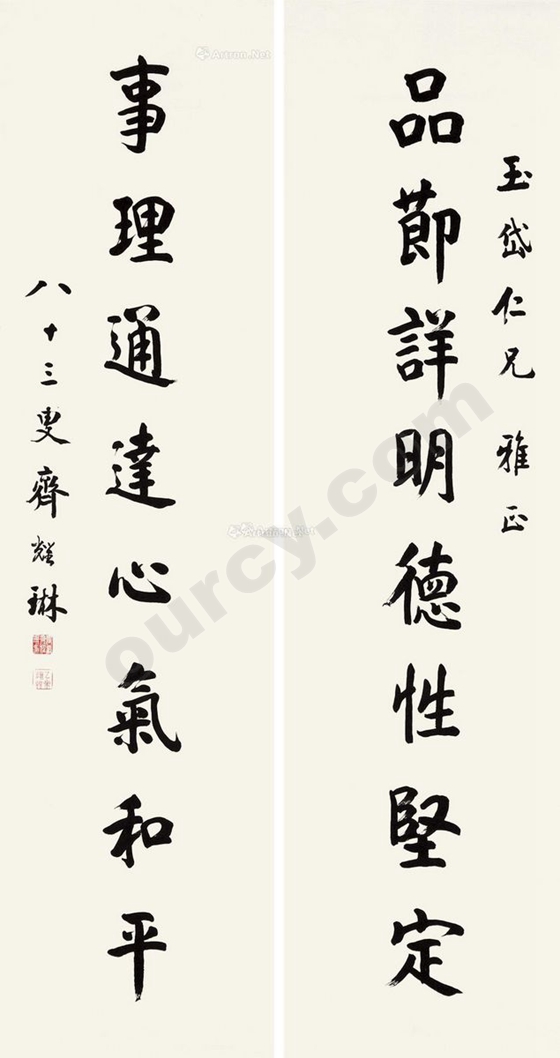 玉岱仁兄 雅正
品節詳明德性堅定
事理通達心氣和平
八十三叟齊耀琳
Artron.Net
ourcy.com